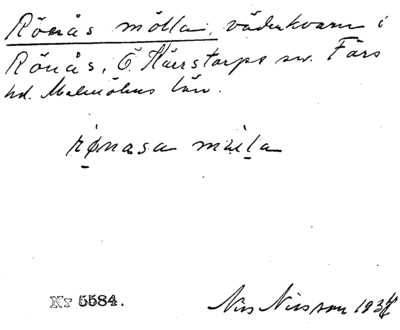 Rönås mölla, väderkvarn i
Rönås, Ö. Kärrstorps sn. Färs
hd. Malmöhus län.
rønasa mɯla
Nr 5584.
Nils Nilsson 1934